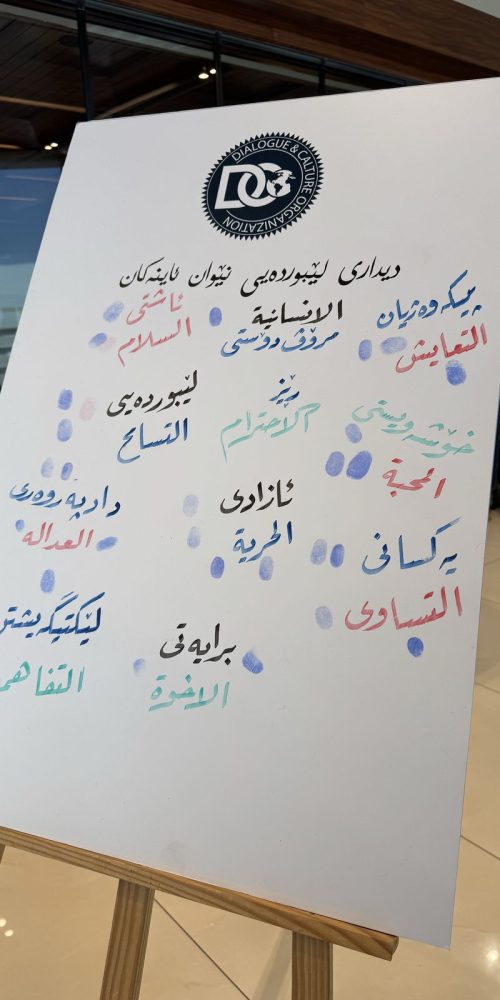 DIALOGUE & CALTURE ORGANIZATION
DCO
دیداری لێبوردەیی نێوان ئاینەکان
پێکەوەژیان
التعايش
الانسانية
مرۆڤ دۆستی
ئاشتی
السلام
خۆشەویستی
المحبة
ڕێز
الاحترام
لێبوردەیی
التسامح
یەکسانی
التساوی
ئازادی
الحرية
دادپەروەری
العداله
برایەتی
الاخوة
لێکتێگەیشتن
التفاهم